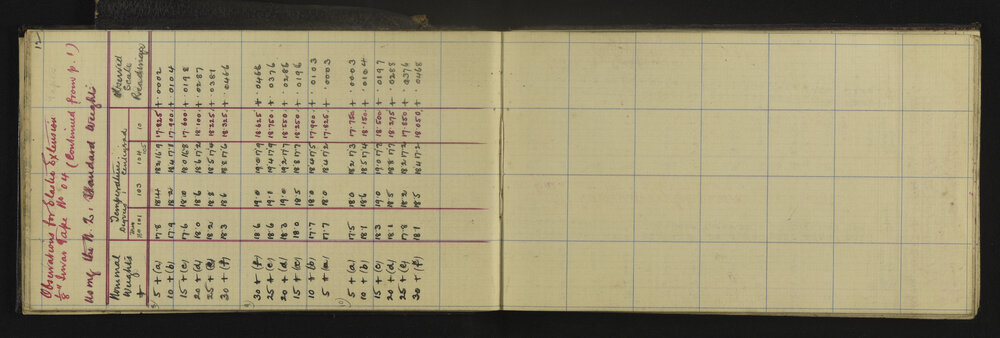 12
Observations for Elastic Extension
1/8" Invar Tape No 04 (Continued from p. 1)
Using the N. Z. Standard Weights
Nominal Weights + Temperature Degrees Centigrade Observed Scale Readings
No 101 103 104 105
5 + (a) 17.8 18.4 18.2 16.9 17.825 + .0002
10 + (b) 17.9 18.2 18.4 17.1 17.900 + .0104
15 + (c) 17.6 18.0 18.0 16.8 17.600 + .0198
20 + (d) 18.0 18.6 18.6 17.2 18.100 + .0287
25 + (e) 18.2 18.8 18.5 17.4 18.225 + .0381
30 + (f) 18.3 18.6 18.8 17.6 18.325 + .0466
9) 30 + (f) 18.6 19.0 19.0 17.9 18.625 + .0468
25 + (e) 18.6 19.1 19.4 17.9 18.750 + .0376
20 + (d) 18.3 19.0 19.2 17.7 18.550 + .0286
15 + (c) 18.0 18.5 18.8 17.7 18.250 + .0196
10 + (b) 17.7 18.0 18.4 17.5 17.900 + .0103
5 + (a) 17.7 18.0 18.4 17.2 17.825 + .0003
10) 5 + (a) 17.5 18.0 18.2 17.3 17.750 + .0003
10 + (b) 18.1 18.6 18.5 17.4 18.150 + .0104
15 + (c) 18.3 19.0 18.9 17.8 18.500 + .0197
20 + (d) 18.1 18.5 18.8 17.7 18.275 + .0288
25 + (e) 17.8 18.2 18.2 17.2 17.850 + .0376
30 + (f) 18.1 18.5 18.4 17.2 18.050 + .0468